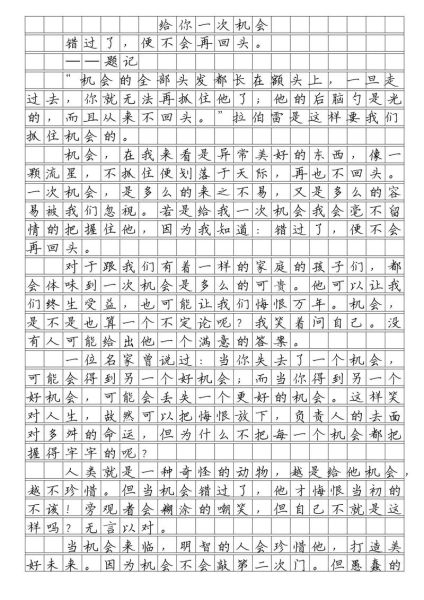 给你一次机会
错过了，便不会再回头。
——题记
“机会的全部头发都长在额头上，一旦走
过去，你就无法再抓住他了；他的后脑勺是光
的，而且从来不回头。”拉伯雷是这样要我们
抓住机会的。
机会，在我来看是异常美好的东西，像一
颗流星，不抓住便划落于天际，再也不回头。
一次机会，是多么的来之不易，又是多么的容
易被我们忽视。若是给我一次机会我会毫不留
情的把握住他，因为我知道：错过了，便不会
再回头。
对于跟我们有着一样的家庭的孩子们，都
会体味到一次机会是多么的可贵。他可以让我
们终生受益，也可能让我们悔恨万年。机会，
是不是也算一个不定论呢？我笑着问自己。没
有人可能给出他一个满意的答案。
一位名家曾说过：当你失去了一个机会，
可能会得到另一个好机会；而当你得到另一个
好机会，可能会丢失一个更好的机会。这样笑
对人生，故然可以把悔恨放下，负责人的去面
对多舛的命运，但为什么不把每一个机会都把
握得牢牢的呢？
人类就是一种奇怪的动物，越是给他机会，
越不珍惜。但当机会错过了，他才悔恨当初的
不该！旁观者会糊涂的嘲笑，但自己不就是这
样吗？无言以对。
当机会来临，明智的人会珍惜他，打造美
好未来。因为机会不会敲第二次门。但愚蠢的